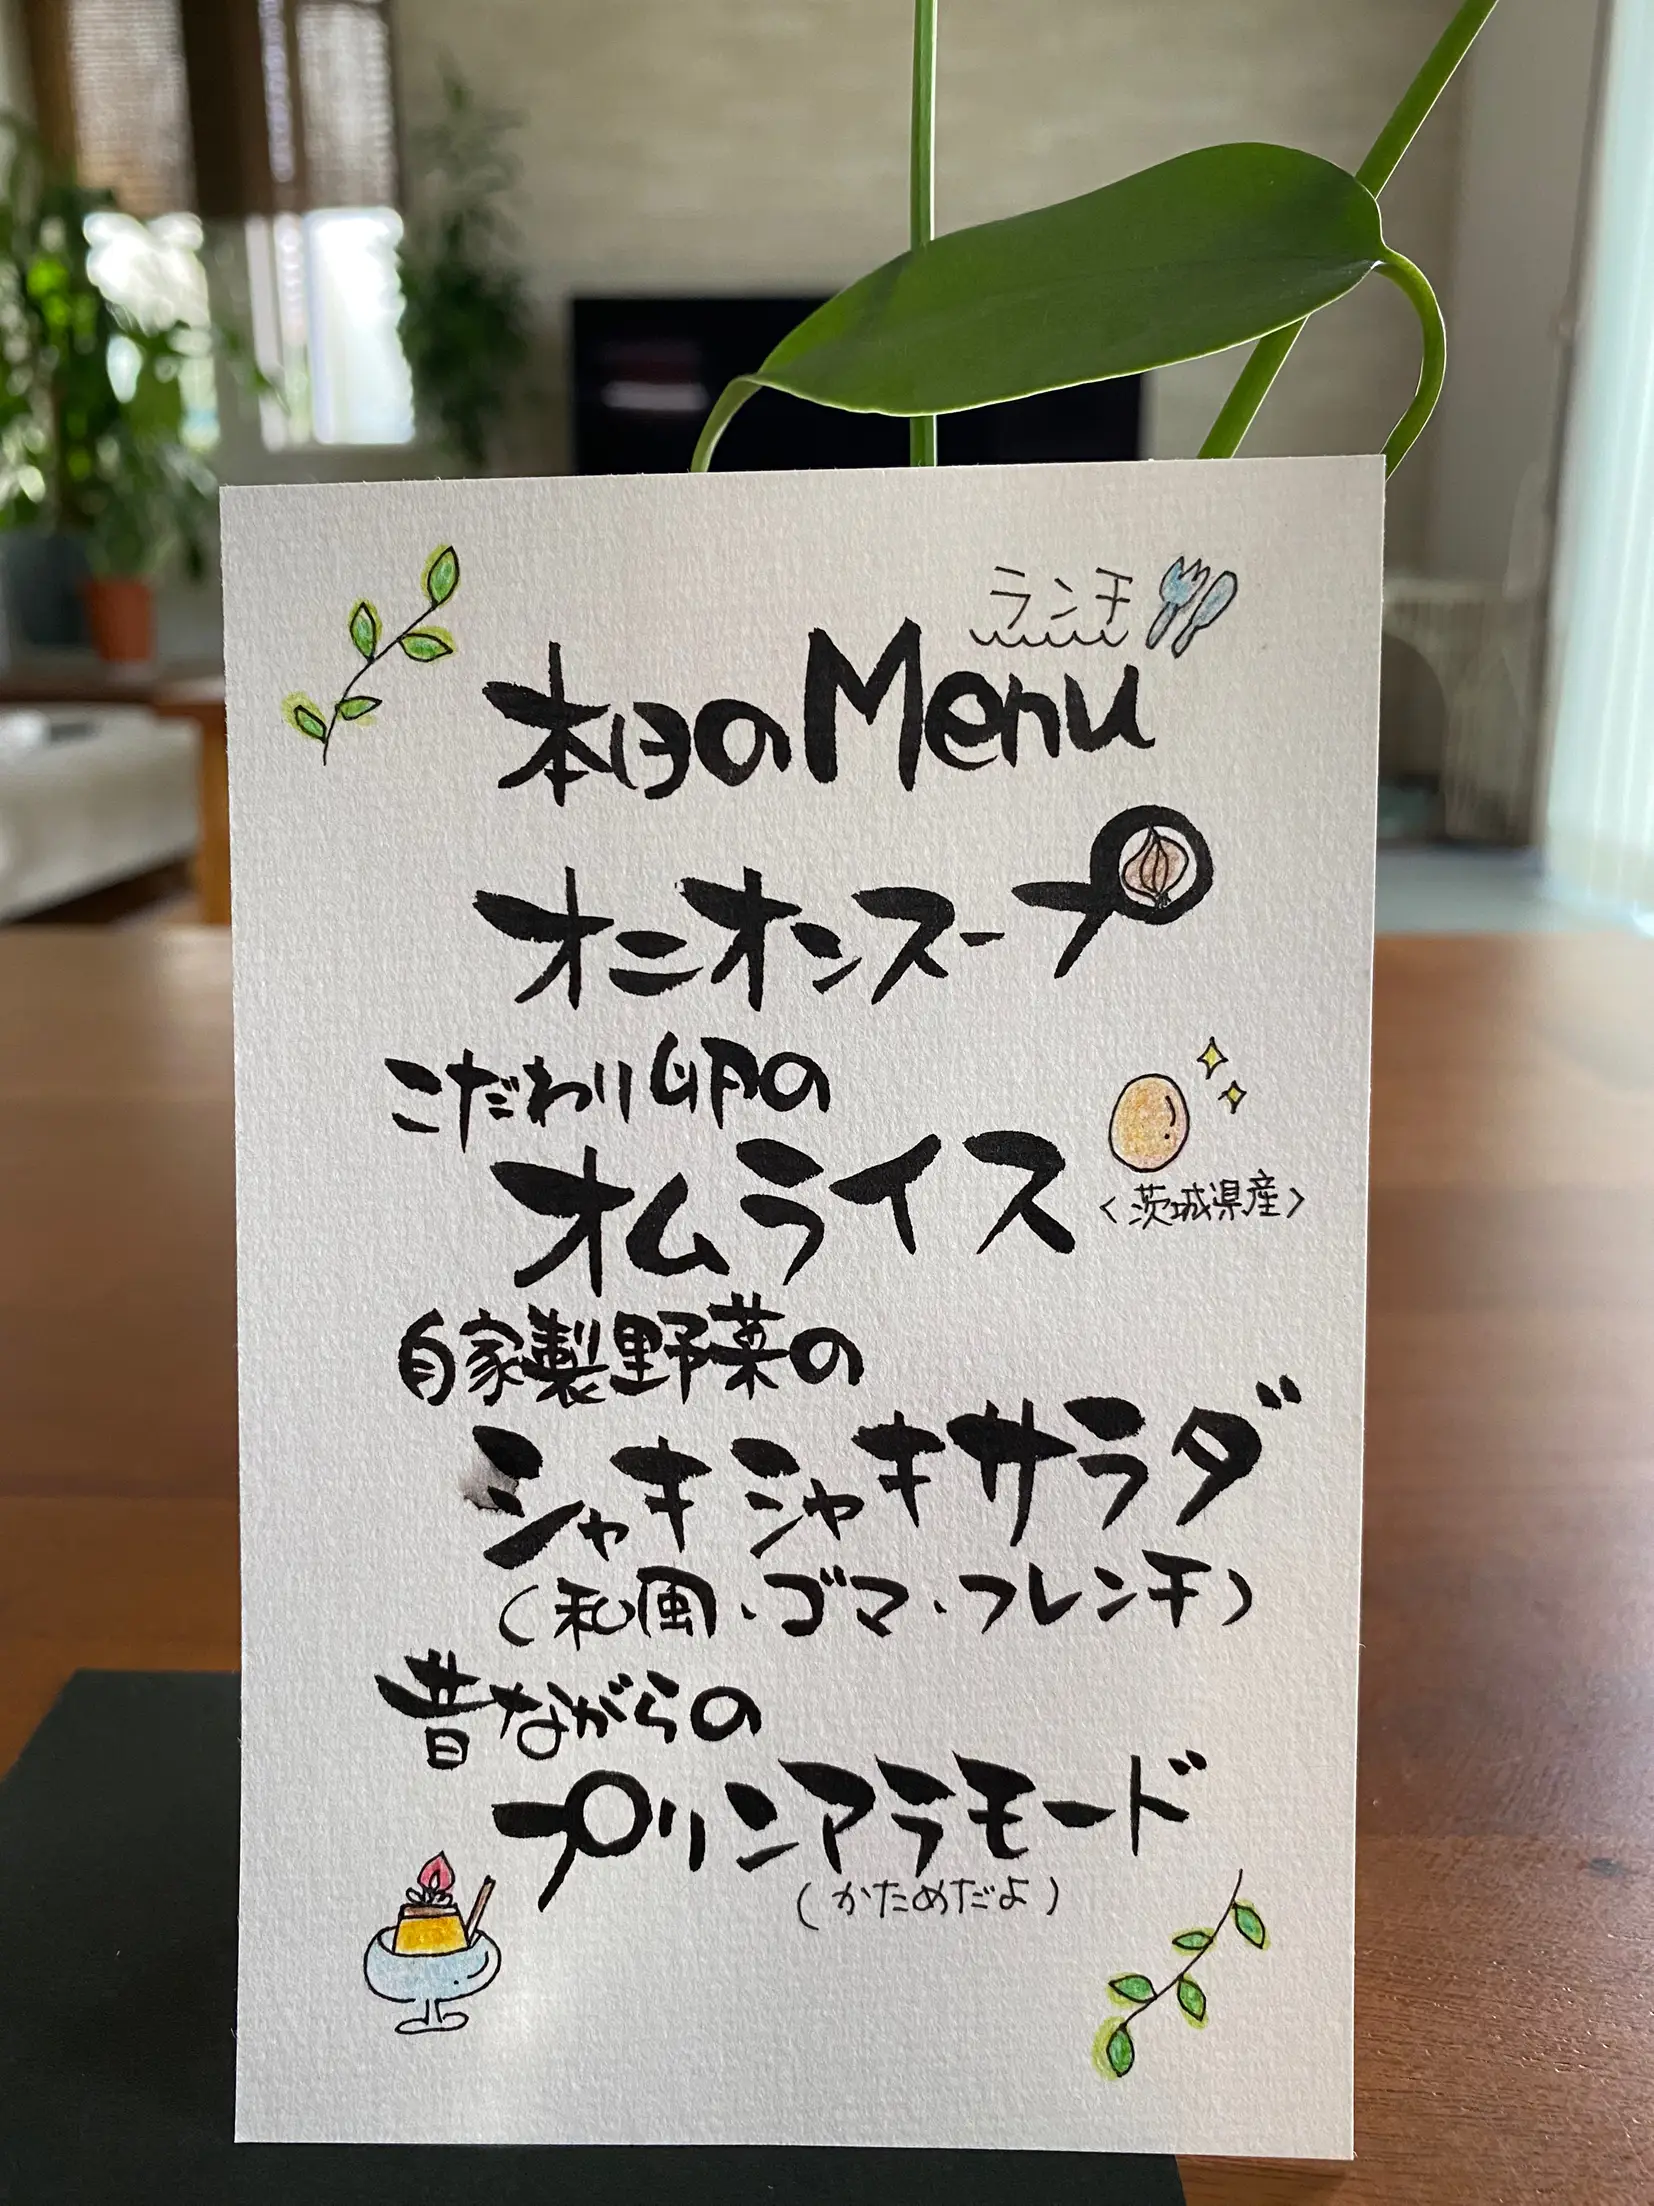 ランチ
本日のMenu
オニオンスープ
こだわり卵の
オムライス
<茨城県産>
自家製野菜の
シャキシャキサラダ
(和風・ゴマ・フレンチ)
昔ながらの
プリンアラモード
(かためだよ)